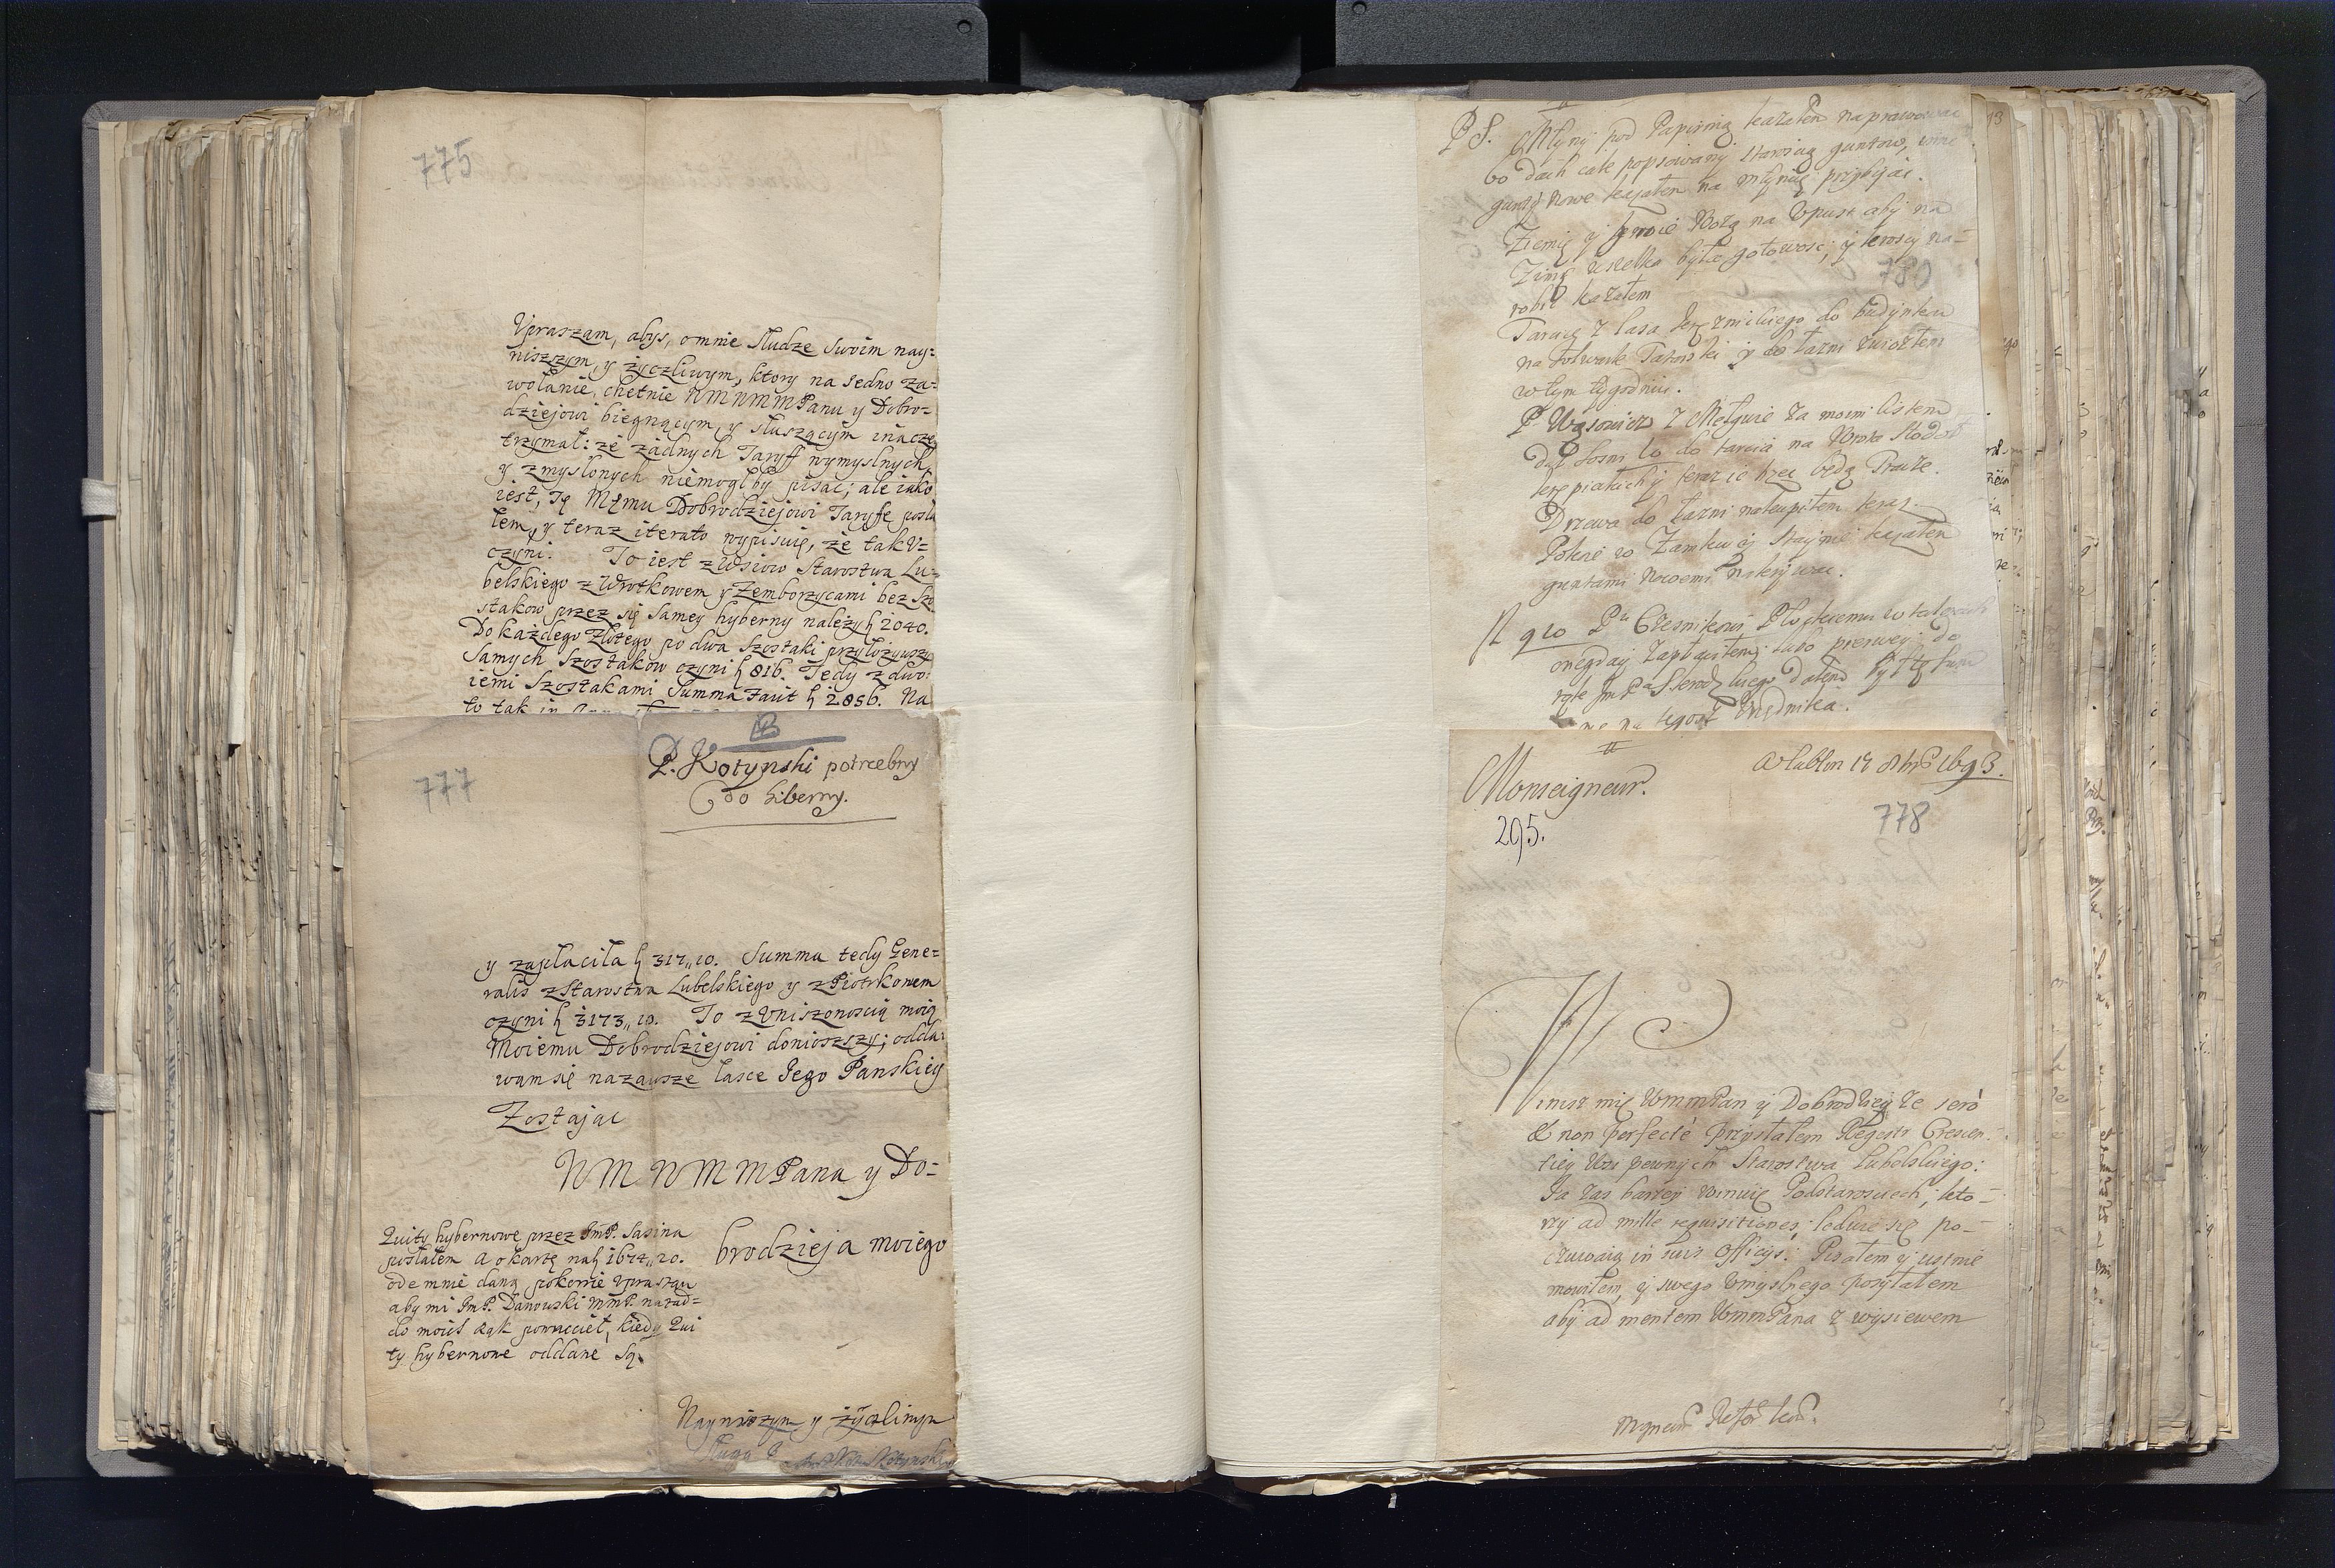 775
Vpraszam, abys, o mnie Sludze Swoim nay=
niszszym, y życzliwym, ktory na iedno za=
wołanie, chetnie WMWMMPanu y Dobro=
dziejowi biegnącym, y słuszącym inaczey
trzymał: że żadnych Taryff wymyslnych,
y zmyslonych niemogłby pisac; ale iako
iest, Tę Męmu Dobrodziejowi Taryfę posła
łem, y teraz iterato wypisuię, że tak V=
czyni. To iest z Wsiow Starostwa Lu=
belskiego z Wrotkowem y Zemborzycami bez Szo
stakow przez się Samey hyberny należy ł 2040.
Do każdego Złotego po dwa Szostaki przyłożywszy
Samych Szostakow czyni ł 816. Tedy z dwo
iemi Szostakami Summa facit ł 2856. Na
to tak in
777
P. Kotynski potrzebny
do hiberny.
y zapłaciła ł 317,,10. Summa tedy Gene=
ralis z Starostwa Lubelskiego y z Piotrkowem
czyni ł 3173,,10. To z Vniszonoscią moią
Moiemu Dobrodziejowi doniozszy; odda=
wam się nazawsze łasce Jego Panskiey
Zostając
WM WMMPana y Do=
brodzieja moiego
Quity hybernowe przez JmP. Sasina
posłałem A o kartę na ł 1674,,20.
odemnie daną pokornie Vpraszam
aby mi JmP. Danowski MmP. nazad=
do moich rąk powrocieł, kiedy Qui
ty hybernowe oddane Są.
Nayniszszym y życzliwym
Sługa
PS. Młyny pod Papirnią kazałem naprawowac
bo dach całe popsowany starością guntow,
gunty nowe kazałem na młynicę przybijac.
Ziemię y na Vpust aby na
Zimę wszelka była gotowosc; y na=
robic kazałem
780
Tarcicę z lasa do budynku
na folwark Tatarski y do łazni zwiozłem
w tym tygodniu.
P Wąsowicz z Mełgwie za moim listem
dał Sosni do tarcia na Stodoł
y teraz ie będą Tracze.
Drzewa do łazni nakupiłem teraz.
Pokoie w Zamku y Staynie kazałem
guntami nowemi nakrywac.
Pu Czesnikowi Płockiemu w talerach
onegday zapłaciłem; lubo pierwey do
rąk
na tegosz Vrzędnika.
Monseigneur.
A Lublin 17 8bre 1693.
295.
778
Winisz mię WmmPan y Dobrodziey że serò
& non perfectè przysłałem Regestr Crescen=
tiey Vsi pewnych Starostwa Lubelskiego:
Ja zas barziey winuię Podstaroscich; kto=
rzy ad mille requisitiones; ledwie się po=
czuwaią in suis Officijs: Pisałem y ustnie
mowiłem, y swego Vmyslnego posyłałem
aby ad mentem WmmPana z wysiewem